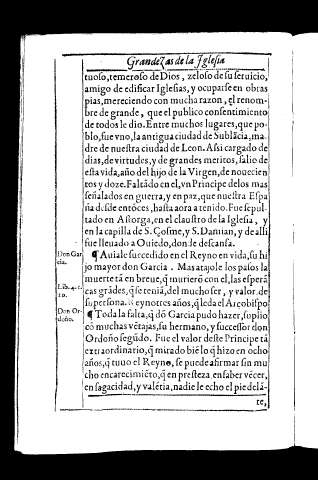 Grandezas de la Iglesia
tuoso, temeroso de Dios, zeloso de su seruicio,
amigo de edificar Iglesias, y ocuparse en obras
pias, mereciendo con mucha razon, el renom-
bre de grande, que el publico consentimiento
de todos le dio. Entre muchos lugares, que po-
blo, fue vno, la antigua ciudad de Sublãcia, ma-
dre de nuestra ciudad de Leon. Assi cargado de
dias, de virtudes, y de grandes meritos, salio de
esta vida, año del hijo de la Virgen, de nouecien
tos y doze. Faltãdo en el, vn Principe de los mas
señalados en guerra, y en paz, que nuestra Espa
ña desde entõces, hasta aora a tenido. Fue sepul-
tado en Astorga, en el claustro de la Iglesia, y
en la capilla de S. Cosme, y S. Damian, y de alli
fue lleuado a Ouiedo, don de descansa.
Don Gar
cia.
¶ Auiale succedido en el Reyno en vida, su hi
jo mayor don Garcia. Mas atajole los pasos la
muerte tã en breue, q̃ murierõ con el, las esperã
Lib. 4. c.
10.
ças grãdes, q̃ se teniã, del mucho ser, y valor de
su persona. Reyno tres años, q̃ le da el Arçobispo
Don Or-
doño.
¶ Toda la falta, q̃ dõ Garcia pudo hazer, suplio
cõ muchas vẽtajas, su hermano, y successor don
Ordoño segũdo. Fue el valor deste Principe tã
extraordinario, q̃ mirado biẽ lo q̃ hizo en ocho
años, q̃ tuuo el Reyno, se puede afirmar sin mu
cho encarecimiẽto, q̃ en presteza, en saber vẽcer,
en sagacidad, y valẽtia, nadie le echo el pie delã-
te,